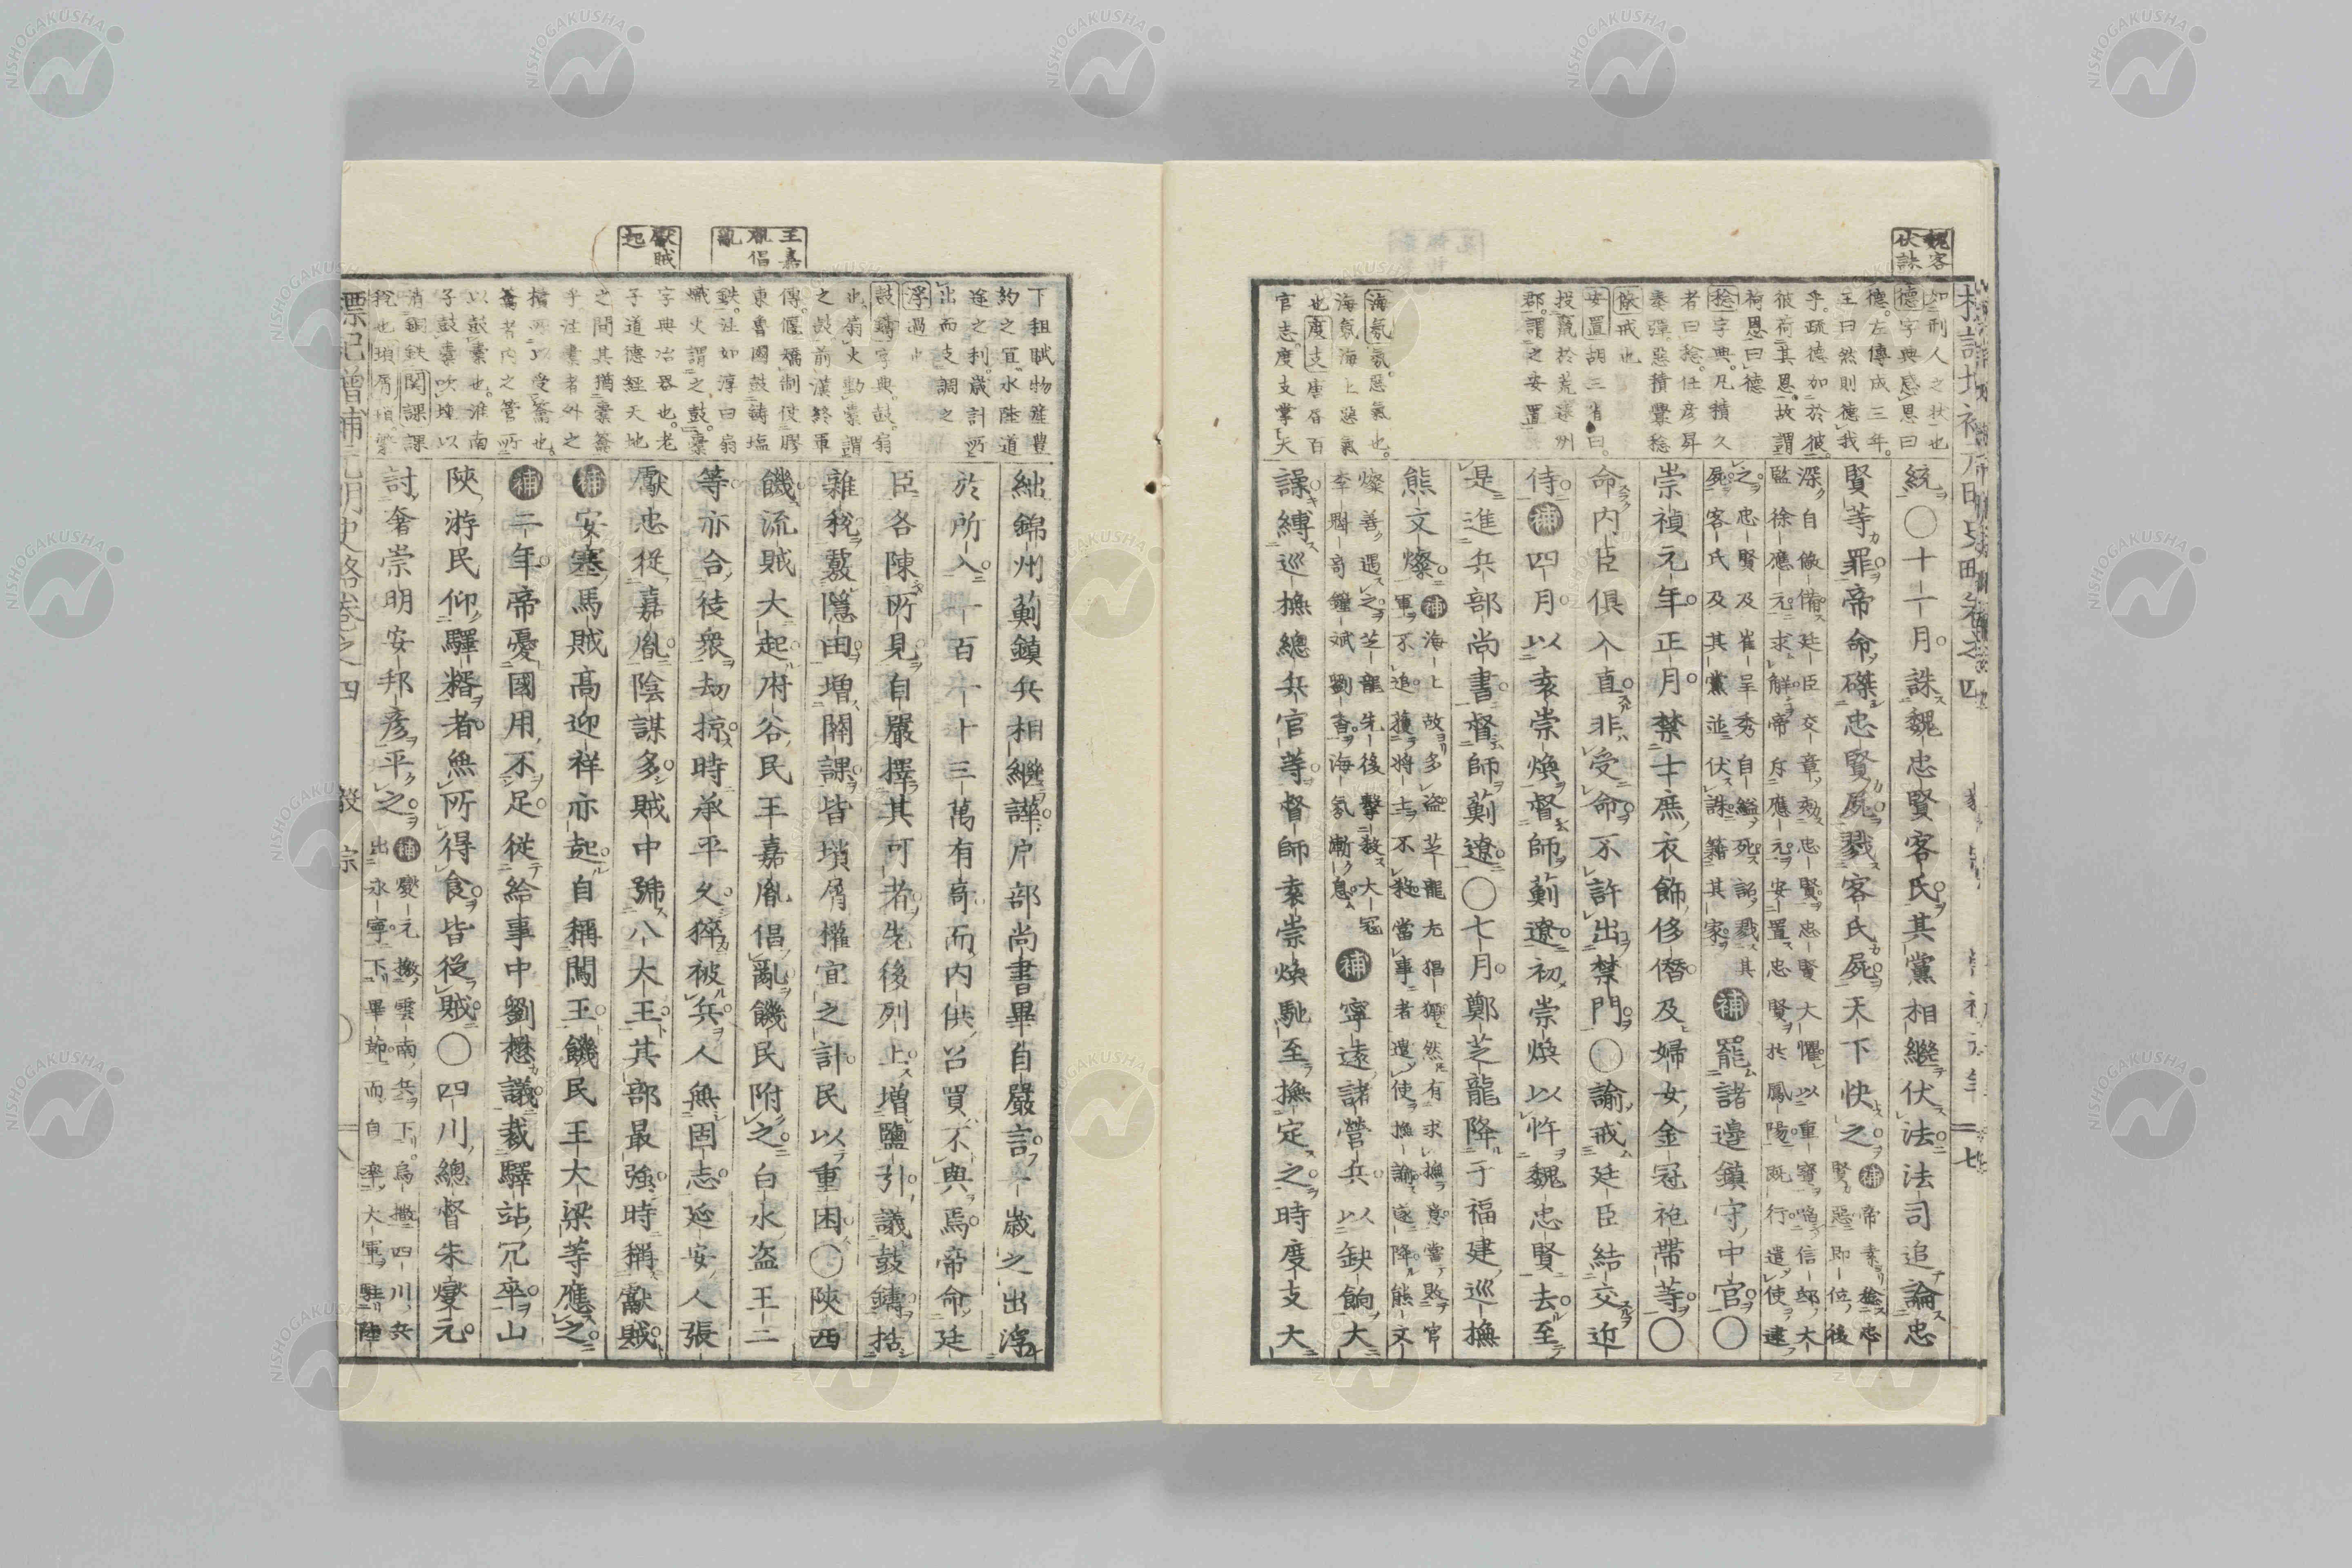 魏客
伏誅
如刑人之状也
德字典感恩曰
德。左傳成三年。
王曰然則德我
乎。疏德加於彼。
彼荷其恩。故謂
荷恩曰德
稔字典。凡積久
者曰稔。任彦昇
奏彈。惡積釁稔
儆戒也
安置胡三省曰。
投竄於荒遠州
郡。謂之安置
海氛氛惡氣也。
海氛海上惡氣
也度支唐百
官志。度支掌天
統〇十一月誅魏忠賢客氏其黨相繼伏法法司追論忠
賢等罪帝命磔忠賢屍戮客氏屍天下快之補帝素稔忠
賢惡即位後
深自儆備廷臣交章劾忠賢忠賢大懼以重寳啗信邸大
監徐應元求解帝斥應元安置忠賢於鳳陽既行遣使逮
之忠賢及崔呈秀自縊死詔戮其
屍客氏及其黨並伏誅籍其家
補罷諸邊鎮守中官〇
崇禎元年正月禁士庶衣飾侈僭及婦女金冠袍帶等〇
命内臣俱入直非受命不許出禁門〇諭戒廷臣結交近
侍補四月以袁崇煥督師薊遼初崇煥以忤魏忠賢去至
是進兵部尚書督師薊遼〇七月鄭芝龍降于福建巡撫
熊文燦補海上故多盗芝龍尤猖獗然有求撫意當敗官
軍不追獲將士不殺當事者遣使撫諭遂降熊文
燦善遇之芝龍先後擊殺大冦
李魁奇鐘斌劉香海氛漸息
補寧遠諸營兵以缺餉大
譟縛巡撫總兵官等督師袁崇煥馳至撫定之時度支大
王嘉
胤倡
亂
獻賊
起
下租賦物產豊
約之宜水陸道
途之利歳計所
出而支調之
浮過也
鼓鑄字典。鼓。扇
也。扇火動橐謂
之鼓前漢終軍
傳。偃矯制使膠
東魯國鼓鑄塩
鉄。注如淳曰扇
熾火謂之鼓。橐
字典冶器也。老
子道德經天地
之間其猶橐籥
乎注橐者外之
櫝所以受籥也。
籥者内之管所
以鼓橐也。淮南
子鼓橐吹埵以
消銅鉄関課課
税也瑣屑瑣繁
絀錦州薊鎮兵相繼譁戸部尚書畢自嚴言一歳之出浮
於所入一百一十三萬有奇而内供召買不與焉帝命廷
臣各陳所見自嚴擇其可者先後列上増鹽引議鼓鑄括
雜税覈隱田増關課皆瑣屑權宜之計民以重困〇陝西
饑流賊大起府谷民王嘉胤倡亂饑民附之白水盗王二
等亦合徒衆劫掠時承平久猝被兵人無固志延安人張
獻忠從嘉胤陰謀多賊中號八大王其部最強時稱獻賊
補安塞馬賊高迎祥亦起自稱闖王饑民王大梁等應之
補二年帝憂國用不足從給事中劉懋議裁驛站冗卒山
陝游民仰驛糈者無所得食皆從賊〇四川總督朱燮元
討奢崇明安邦彦平之補燮元檄雲南兵下烏撒四川兵
出永寧下畢節而自率大軍駐陸
標記増補元明史略巻之四　毅宗